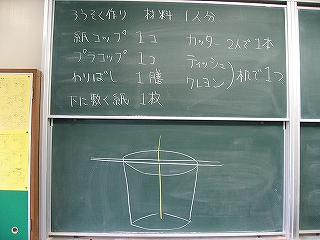 ろうそく作り 材料 1人分
紙コップ 1コ
プラコップ 1コ
わりばし 1膳
下に敷く紙 1枚
カッター 2人で1本
ティッシュ
クレヨン
机で1つ